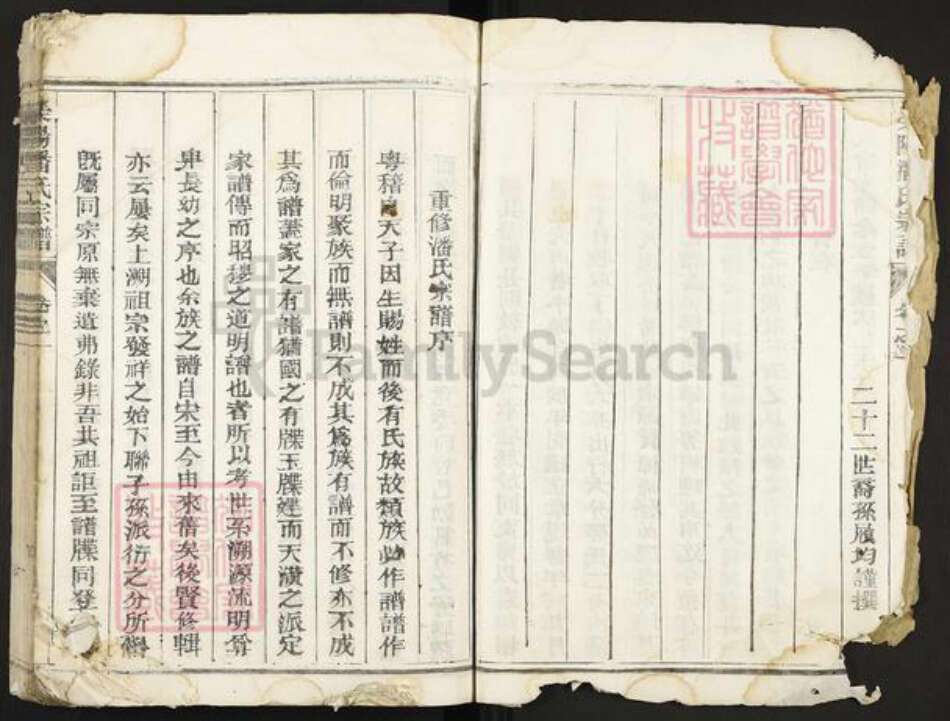 二十二世裔孫展均謹撰
重修潘氏宗譜序
粤稽自天子因生賜姓而後有氏族故類族必作譜譜作
而倫明聚族而無譜則不成其為族有譜而不修亦不成
其為譜蓋家之有譜猶國之有牒玉牒
而天潢之派定
家譜傳而昭穆之道明譜也者所以考世系溯源流明尊
卑長幼之序也余族之譜自宋至今由來舊矣後賢修輯
亦云屢矣上溯祖宗發祥之始下聯子孫派衍之分所
既屬同宗原無棄遺弗錄非吾共祖詎至譜牒同登
滎陽潘氏宗譜
FamilySearch